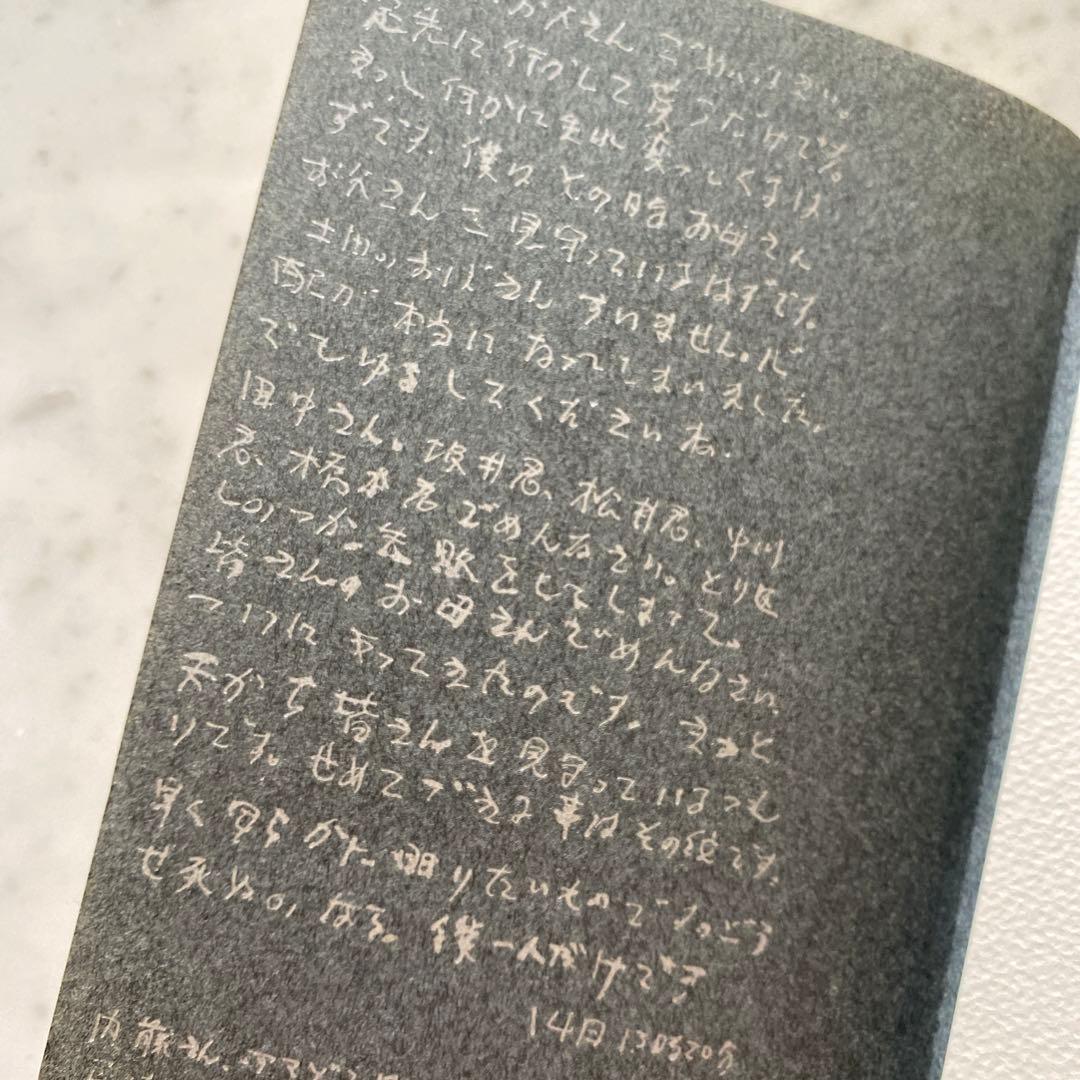 お父さん ごめんなさい。
先に行かして貰うだけです。
きっと何かに生れ変ってくるは
ずです。僕はその時お母さん
お父さんを見守っているはずです。
土田のおばさんすいません。心
配が本当になってしまいました。
でもゆるしてくださいね。
田中さん。坂井君、松井君、中川
君、橋本君ごめんなさい。とりは
しのつかぬ失敗をしてしまって。
皆さんのお母さんごめんなさい。
ついにやってきたのです。きっと
天から皆さんを見守っているつも
りです。せめてできる事はその位です。
早く夜があけてもらいたいものです。どう
せ死ぬのなら。僕一人だけです
14日13時20分
内藤さん、